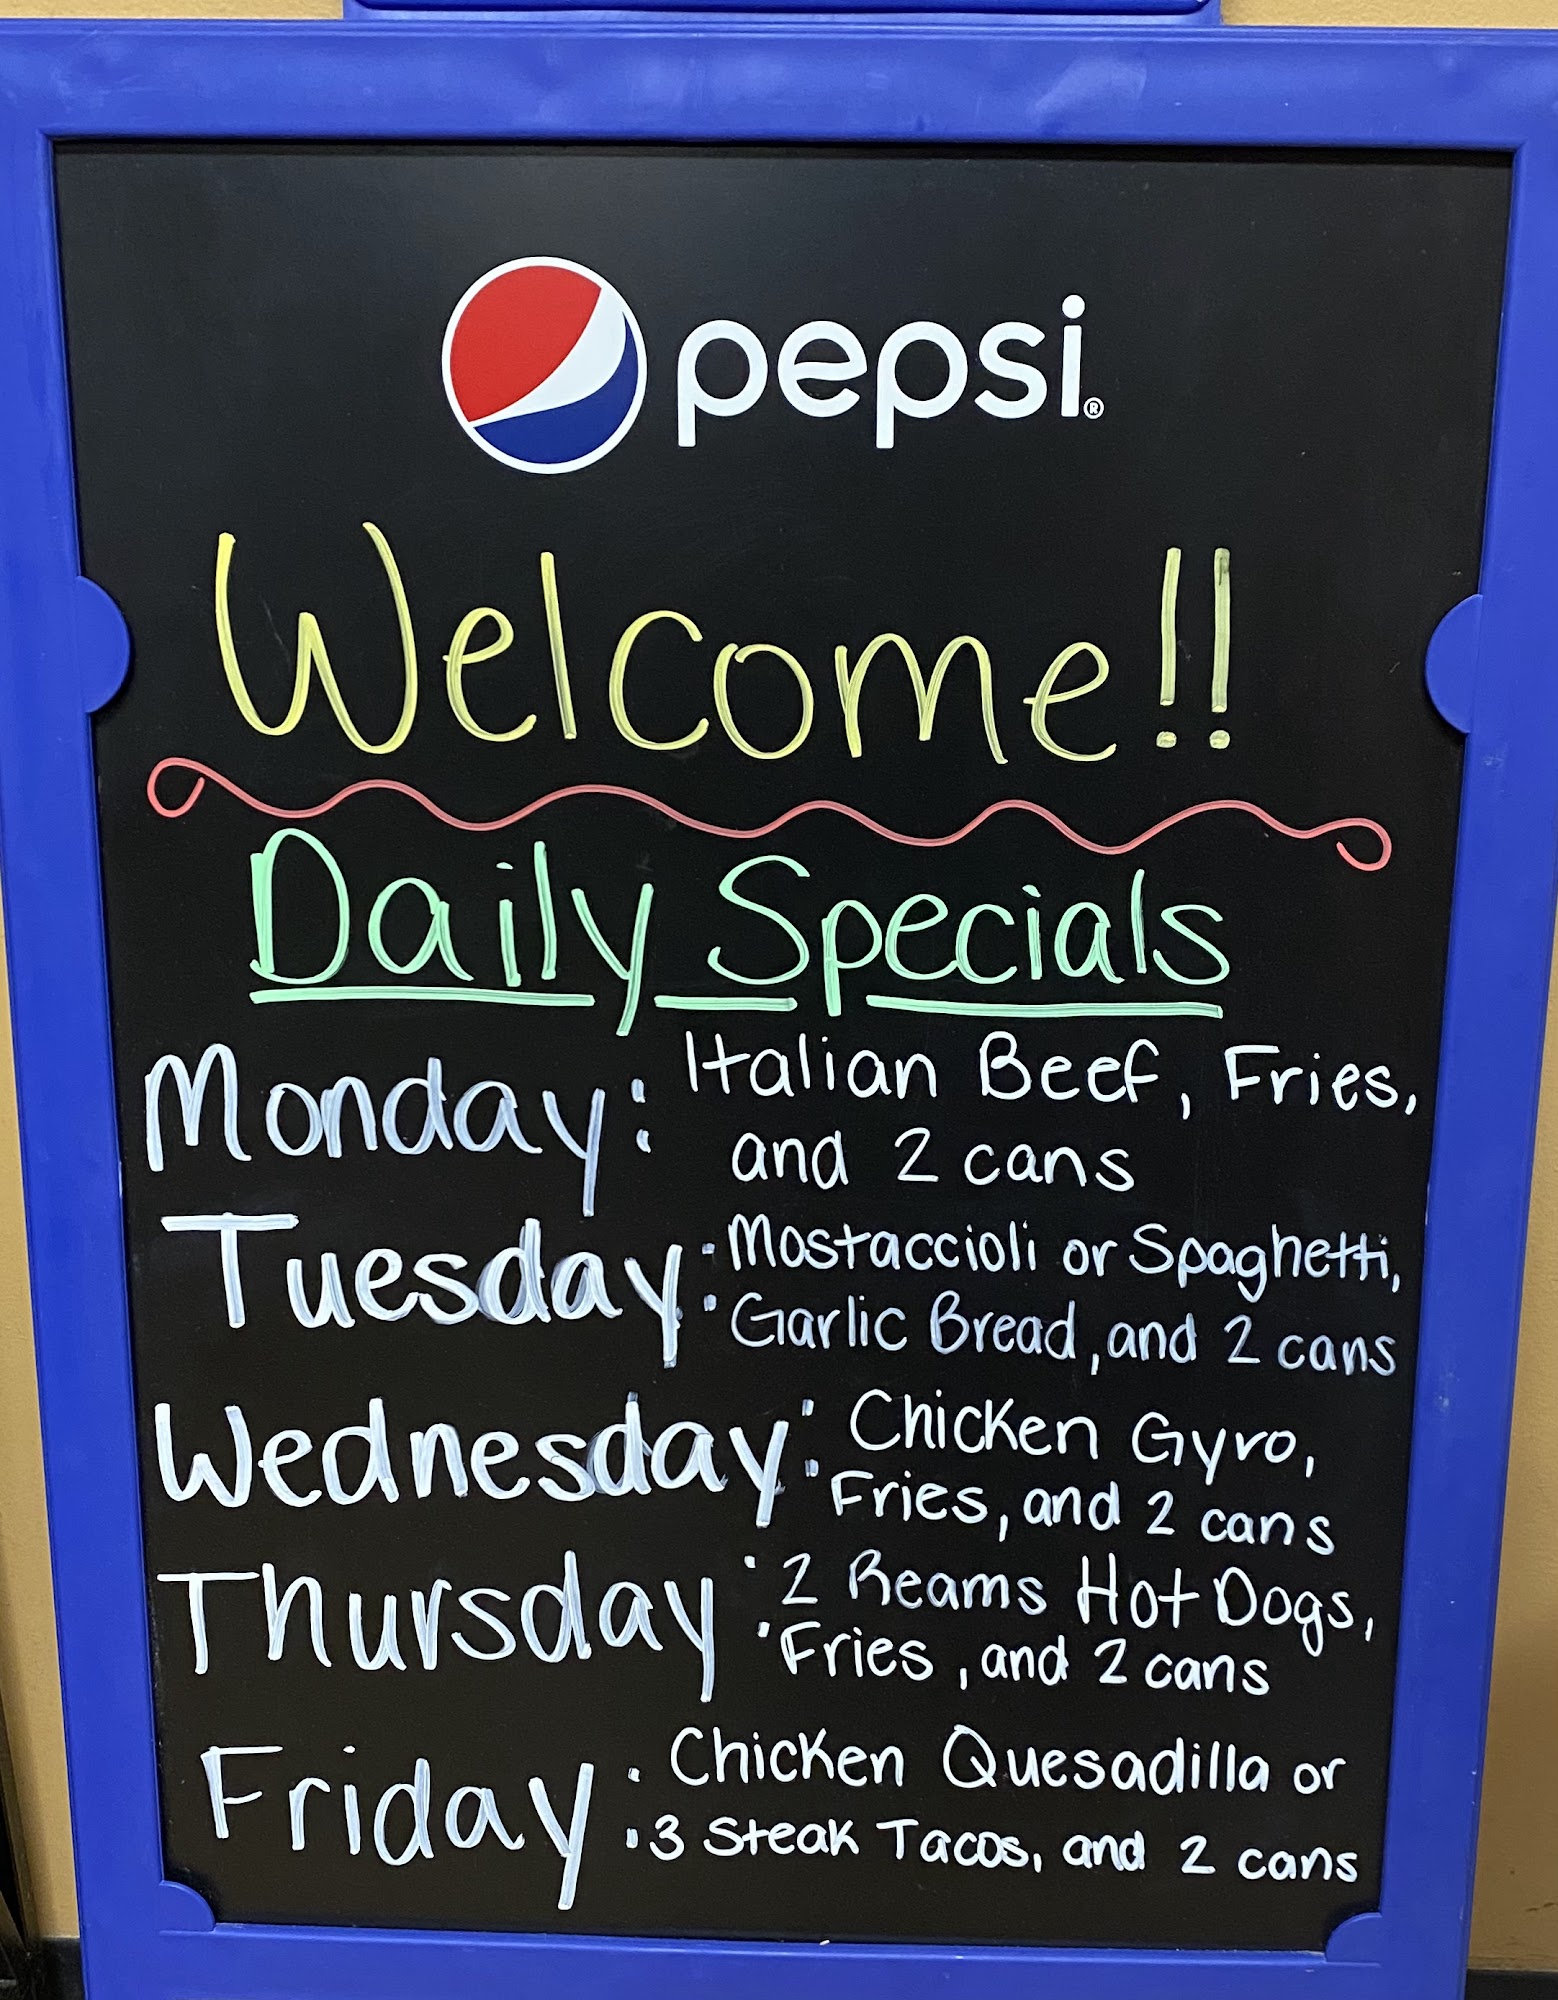 pepsi®
Welcome!!
Daily Specials
Monday: Italian Beef, Fries,
and 2 cans
Tuesday: Mostaccioli or Spaghetti,
Garlic Bread, and 2 cans
Wednesday: Chicken Gyro,
Fries, and 2 cans
Thursday: 2 Reams Hot Dogs,
Fries, and 2 cans
Friday: Chicken Quesadilla or
3 Steak Tacos, and 2 cans